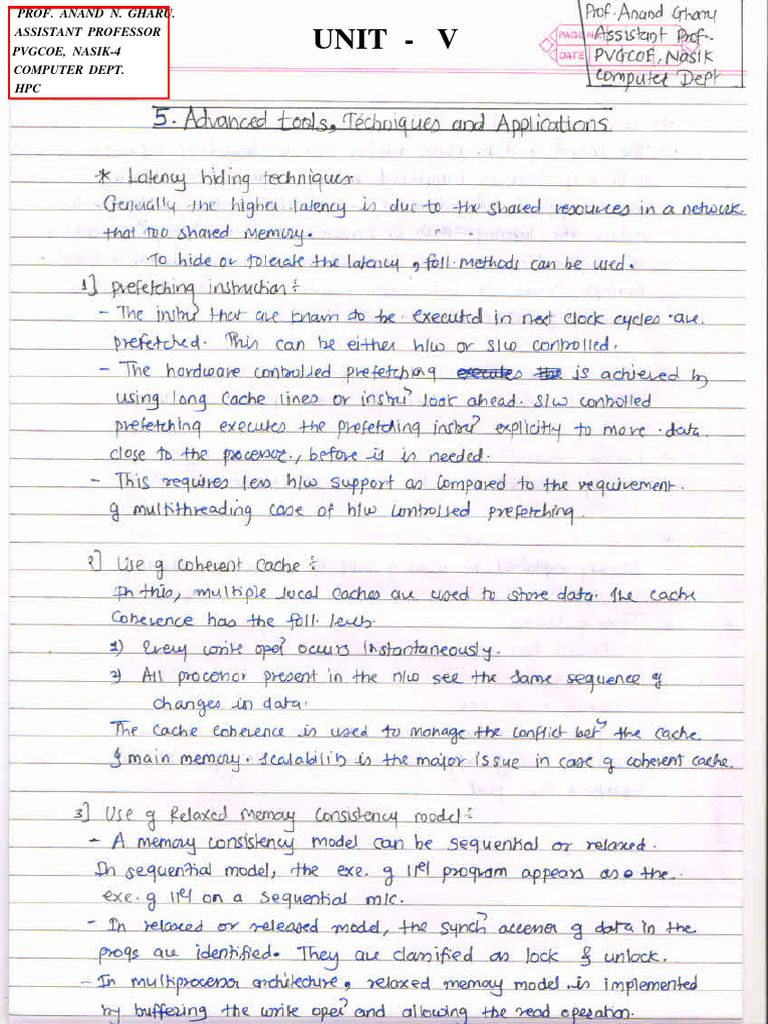 PROF. ANAND N. GHARU.
ASSISTANT PROFESSOR
PVGCOE, NASIK-4
COMPUTER DEPT.
HPC
UNIT - V
PAGE No
DATE
Prof. Anand Gharu
Assistant Prof.
PVGCOE, Nasik
Computer Dept
5. Advanced tools, Techniques and Applications
* Latency hiding techniques
Generally the higher latency is due to the shared resources in a network
that too shared memory.
To hide or tolerate the latency, foll. methods can be used.
1] prefetching instruction:
- The instrn that are known to be executed in next clock cycles are
prefetched. This can be either h/w or s/w controlled.
- The hardware controlled prefetching is achieved by
using long cache lines or instrn look ahead. s/w controlled
prefetching executes the prefetching instrn explicitly to move data
close to the processor, before it is needed.
- This requires less h/w support as compared to the requirement
g multithreading case of h/w controlled prefetching.
2] Use g coherent cache:
In this, multiple local caches are used to store data. The cache
coherence has the foll. levels.
1) Every write opern occurs instantaneously.
2) All processor present in the n/w see the same sequence g
changes in data.
The cache coherence is used to manage the conflict betn the cache
& main memory. Scalability is the major issue in case g coherent cache.
3] Use g Relaxed memory consistency model:
- A memory consistency model can be sequential or relaxed.
In sequential model, the exe. g llel program appears as the
exe. g llel on a sequential m/c.
- In relaxed or released model, the synchn accessor g data in the
progs are identified. They are classified as lock & unlock.
- In multiprocessor architecture, relaxed memory model is implemented
by buffering the write opern and allowing the read operation.